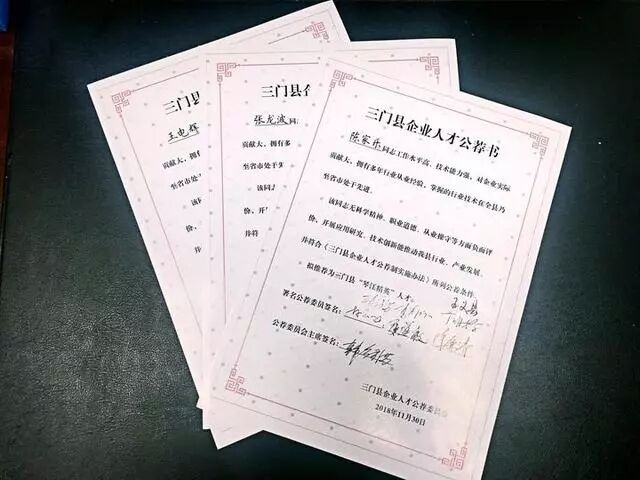 三门县
王电辉
贡献大，拥有多
至省市处
该
份、开
并符
三门县企
张龙波同
贡献大，拥有多
至省市处于先
该同志
份、开展
并符合
三门县企业人才公荐书
陈家乐同志工作水平高，技术能力强，对企业实际
贡献大，拥有多年行业从业经验，掌握的行业技术在全县乃
至省市处于先进。
该同志无科学精神、职业道德、从业操守等方面负面评
价，开展应用研究、技术创新能推动我县行业、产业发展，
并符合《三门县企业人才公荐制实施办法》所列公荐条件。
拟推荐为三门县“琴江精英”人才。
署名公荐委员签名：
公荐委员会主席签名：
三门县企业人才公荐委员会
2018年11月30日